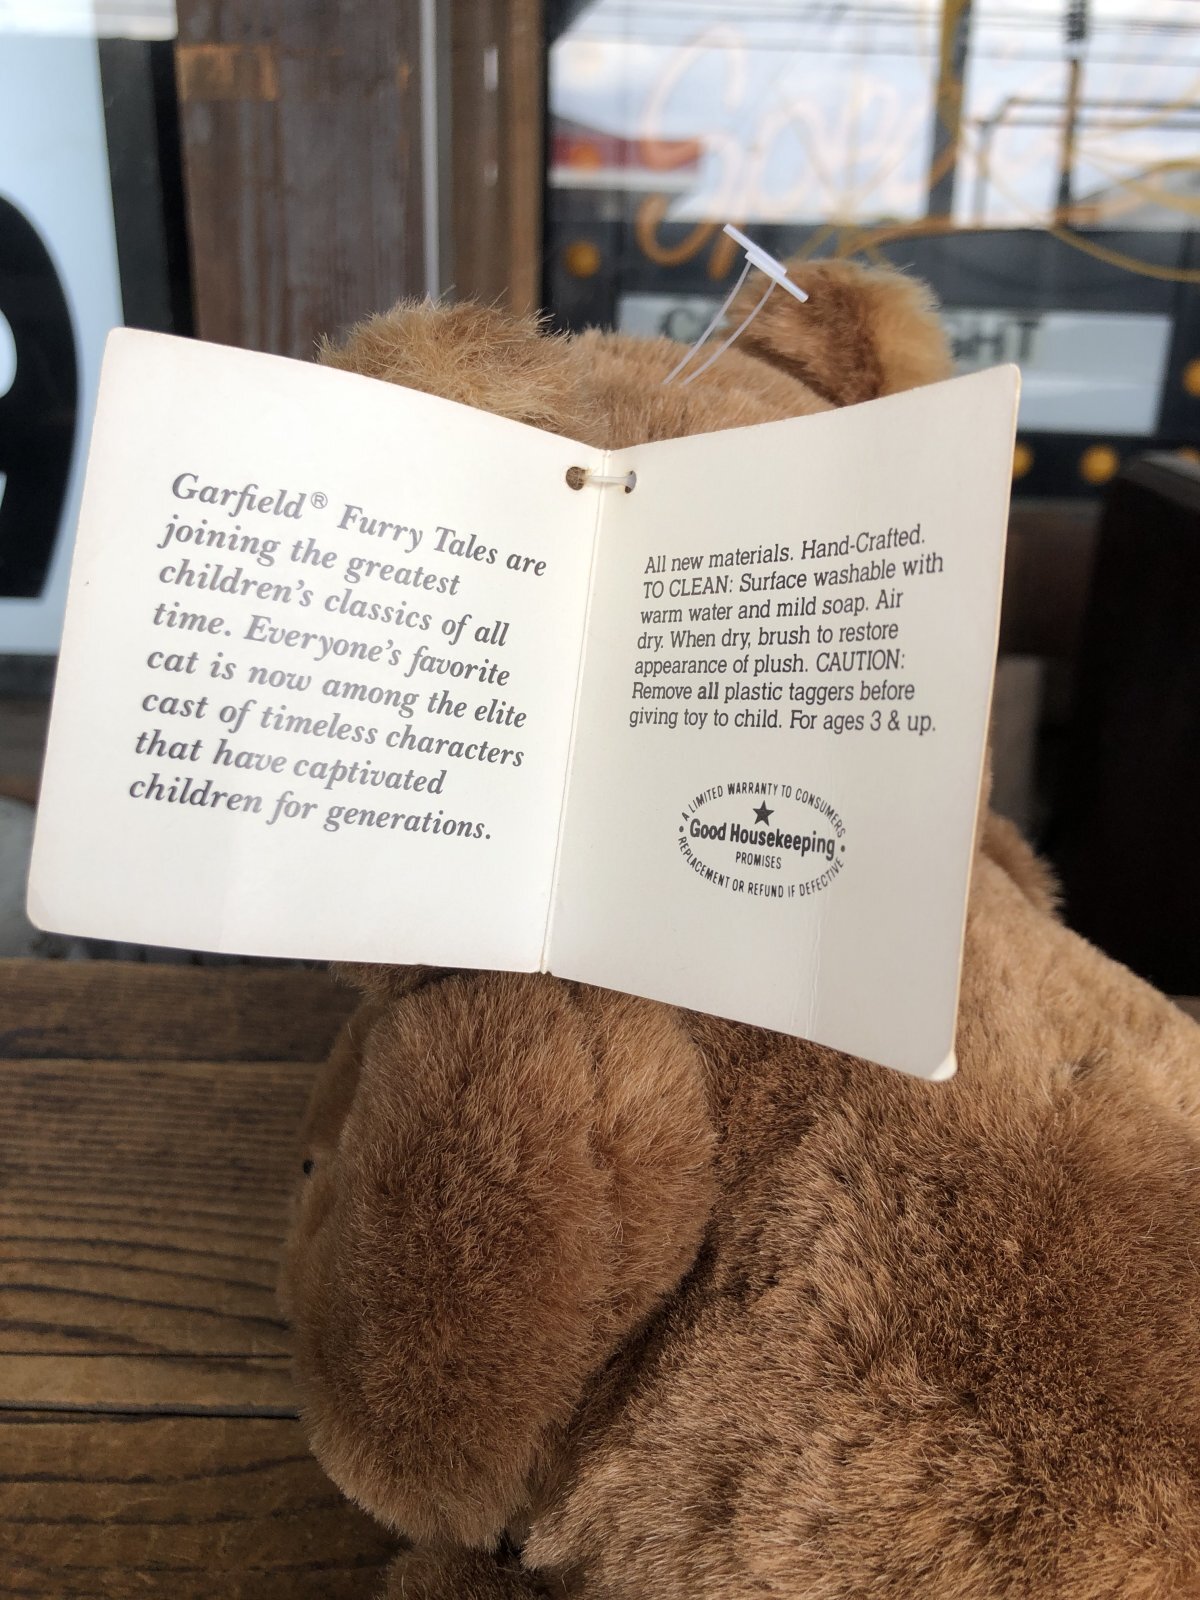 Garfield® Furry Tales are
joining the greatest
children's classics of all
time. Everyone's favorite
cat is now among the elite
cast of timeless characters
that have captivated
children for generations.
All new materials. Hand-Crafted.
TO CLEAN: Surface washable with
warm water and mild soap. Air
dry. When dry, brush to restore
appearance of plush. CAUTION:
Remove all plastic taggers before
giving toy to child. For ages 3 & up.
A LIMITED WARRANTY TO CONSUMERS
Good Housekeeping
PROMISES
REPLACEMENT OR REFUND IF DEFECTIVE